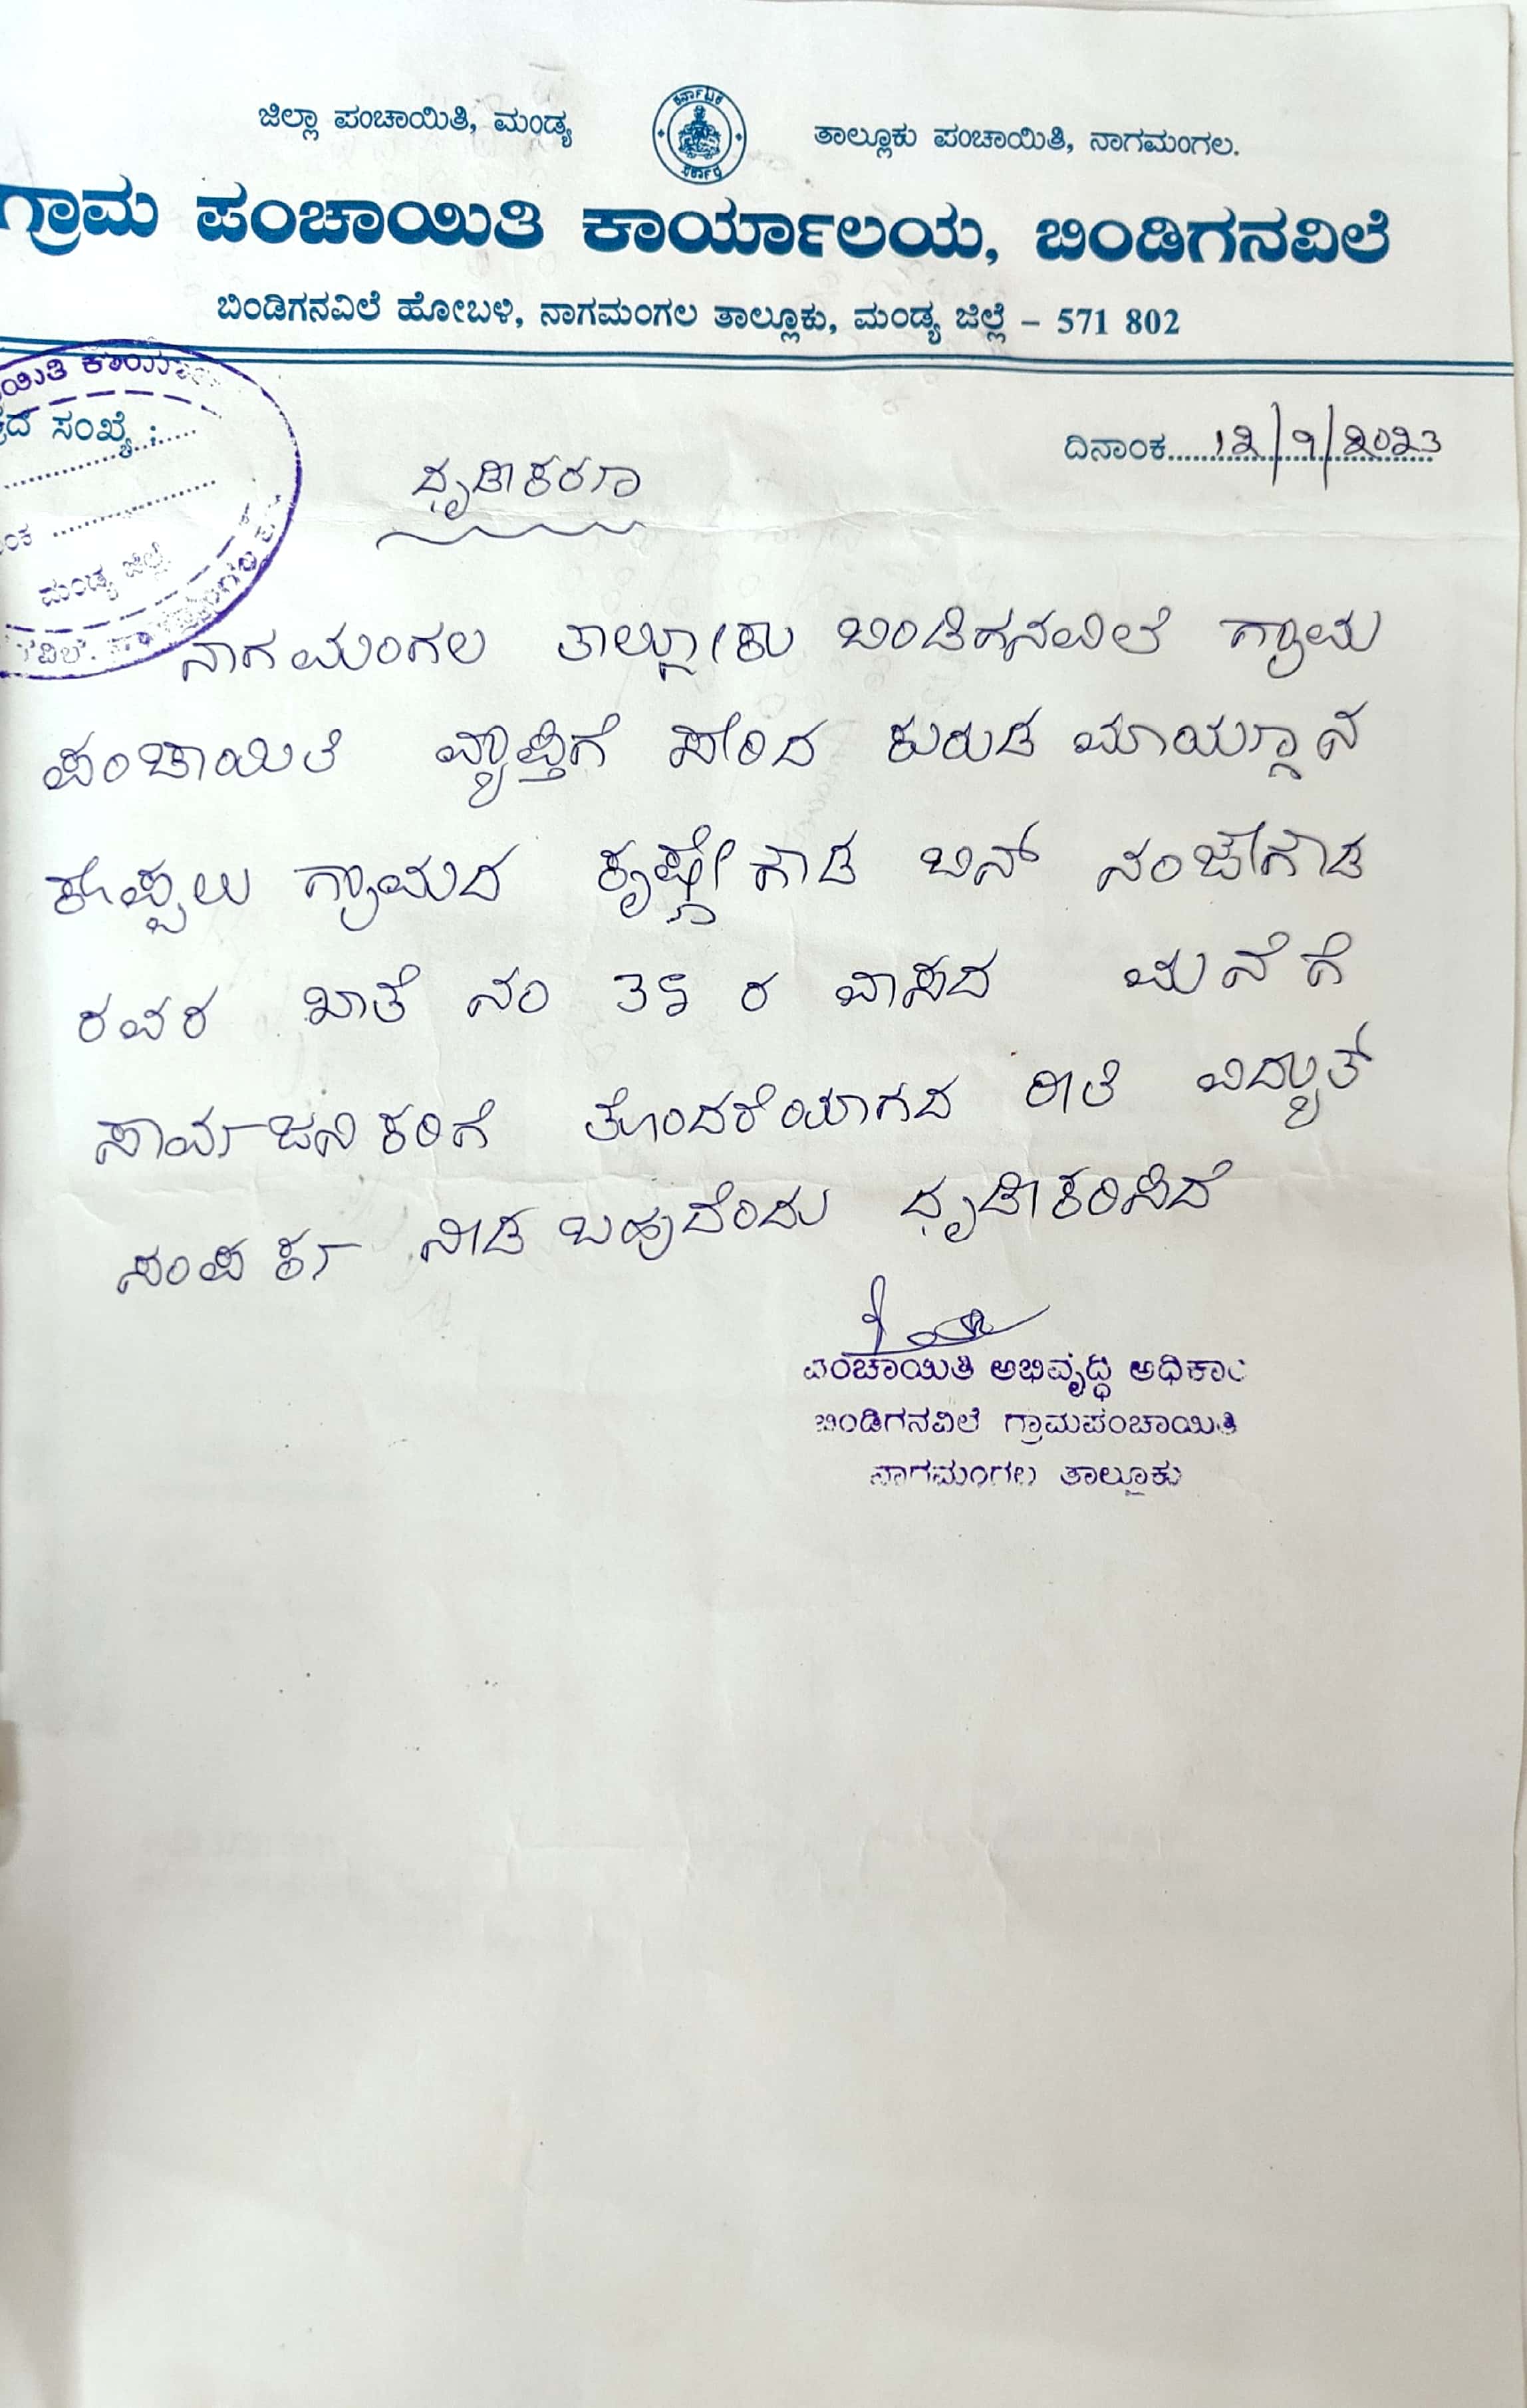 ಜಿಲ್ಲಾ ಪಂಚಾಯಿತಿ, ಮಂಡ್ಯ
ಕರ್ನಾಟಕ
ಸರ್ಕಾರ
ತಾಲ್ಲೂಕು ಪಂಚಾಯಿತಿ, ನಾಗಮಂಗಲ.
ಗ್ರಾಮ ಪಂಚಾಯಿತಿ ಕಾರ್ಯಾಲಯ, ಬಿಂಡಿಗನವಿಲೆ
ಬಿಂಡಿಗನವಿಲೆ ಹೋಬಳಿ, ನಾಗಮಂಗಲ ತಾಲ್ಲೂಕು, ಮಂಡ್ಯ ಜಿಲ್ಲೆ – 571 802
ಸಂಖ್ಯೆ :
ಮಂಡ್ಯ ಜಿಲ್ಲೆ
ದಿನಾಂಕ.....12/9/2023
ಧೃಡೀಕರಣ
ನಾಗಮಂಗಲ ತಾಲ್ಲೂಕು ಬಿಂಡಿಗನವಿಲೆ ಗ್ರಾಮ
ಪಂಚಾಯಿತಿ ವ್ಯಾಪ್ತಿಗೆ ಸೇರಿದ ಕುರುಡ ಮಾಯಣ್ಣನ
ಕೊಪ್ಪಲು ಗ್ರಾಮದ ಕೃಷ್ಣೇಗೌಡ ಬಿನ್ ನಂಜೇಗೌಡ
ರವರ ಖಾತೆ ನಂ 35 ರ ವಾಸದ ಮನೆಗೆ
ಸಾರ್ವಜನಿಕರಿಗೆ ತೊಂದರೆಯಾಗದ ರೀತಿ ವಿದ್ಯುತ್
ಸಂಪರ್ಕ ನೀಡ ಬಹುದೆಂದು ಧೃಡೀಕರಿಸಿದೆ
ಪಂಚಾಯಿತಿ ಅಭಿವೃದ್ಧಿ
ಬಿಂಡಿಗನವಿಲೆ ಗ್ರಾಮಪಂಚಾಯಿತಿ
ನಾಗಮಂಗಲ ತಾಲ್ಲೂಕು